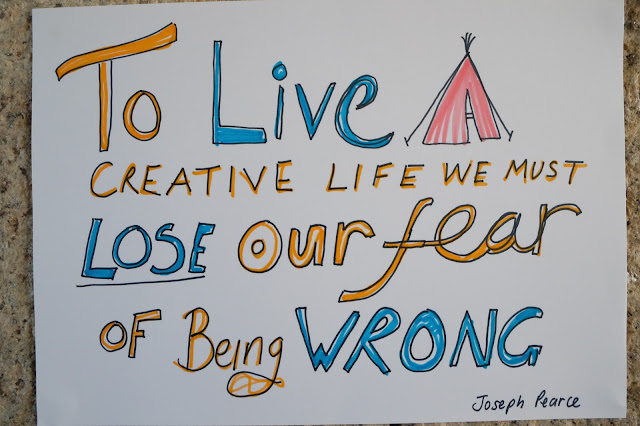 To Live A
CREATIVE LIFE WE MUST
LOSE our fear
OF Being WRONG
Joseph Pearce